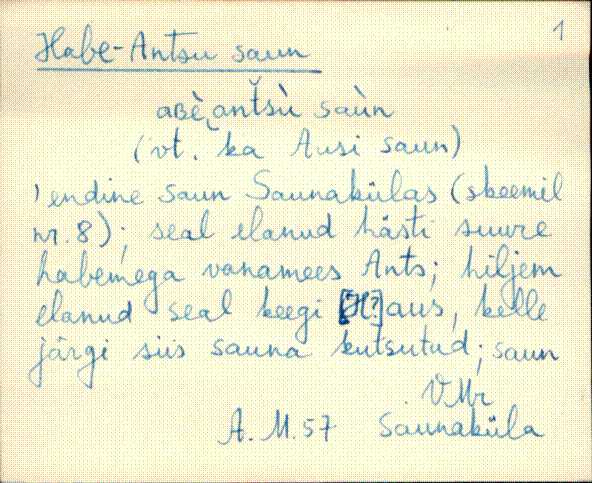 1
Habe-Antsu saun
aʙè͔antsù saùn
(vt. ka Ausi saun)
' endine saun Saunakülas (skeemil
nr. 8); seal elanud hästi suure
habemega vanamees Ants; hiljem
elanud seal keegi [H?]aus, kelle
järgi siis sauna kutsutud; saun
VMr
A. M. 57 Saunaküla